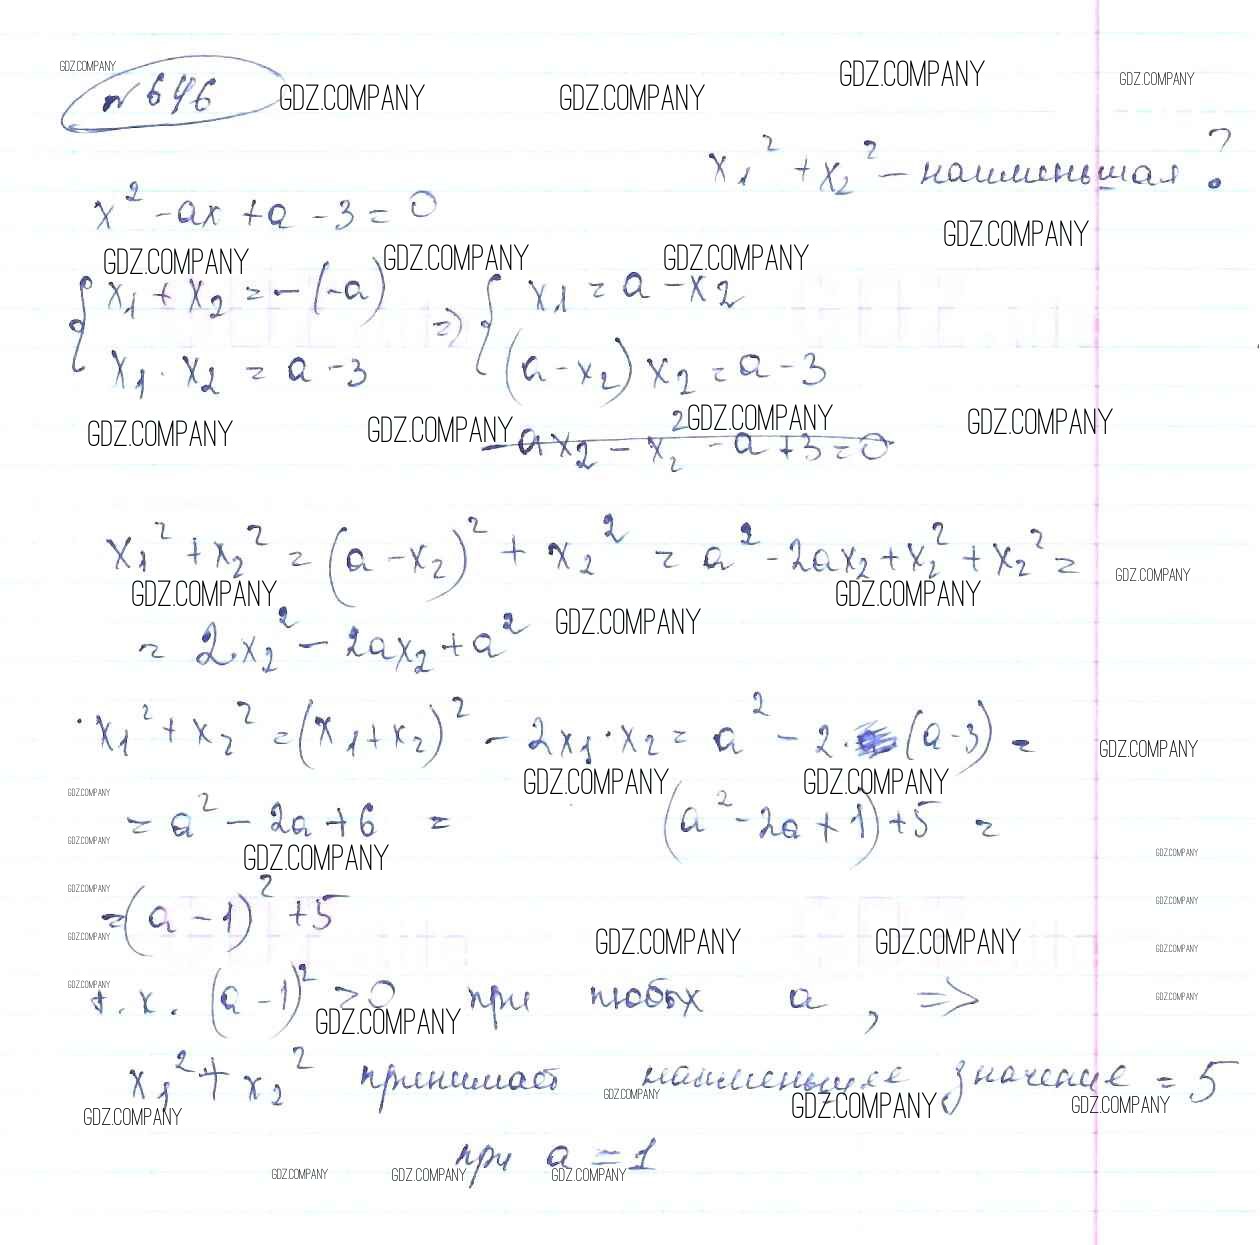 GDZ.COMPANY
№ 646 GDZ.COMPANY GDZ.COMPANY GDZ.COMPANY GDZ.COMPANY
x₁² + x₂² – наименьшая ?
x² - ax + a - 3 = 0
GDZ.COMPANY GDZ.COMPANY GDZ.COMPANY GDZ.COMPANY
{ x₁ + x₂ = -(-a) => { x₁ = a - x₂
x₁ · x₂ = a - 3 (a - x₂) x₂ = a - 3
GDZ.COMPANY GDZ.COMPANY GDZ.COMPANY GDZ.COMPANY
- ax₂ - x₂² - a + 3 = 0
x₁² + x₂² = (a - x₂)² + x₂² = a² - 2ax₂ + x₂² + x₂² =
GDZ.COMPANY GDZ.COMPANY GDZ.COMPANY
GDZ.COMPANY
= 2x₂² - 2ax₂ + a²
· x₁² + x₂² = (x₁ + x₂)² - 2x₁ · x₂ = a² - 2 · (a - 3) =
GDZ.COMPANY
GDZ.COMPANY GDZ.COMPANY GDZ.COMPANY
= a² - 2a + 6 = (a² - 2a + 1) + 5 =
GDZ.COMPANY
GDZ.COMPANY GDZ.COMPANY
GDZ.COMPANY GDZ.COMPANY
= (a - 1)² + 5
GDZ.COMPANY GDZ.COMPANY GDZ.COMPANY GDZ.COMPANY
GDZ.COMPANY GDZ.COMPANY
т. к. (a - 1)² > 0 при любых a , =>
GDZ.COMPANY
x₁² + x₂² принимает наименьшее значение = 5
GDZ.COMPANY GDZ.COMPANY GDZ.COMPANY GDZ.COMPANY
при a = 1
GDZ.COMPANY GDZ.COMPANY GDZ.COMPANY